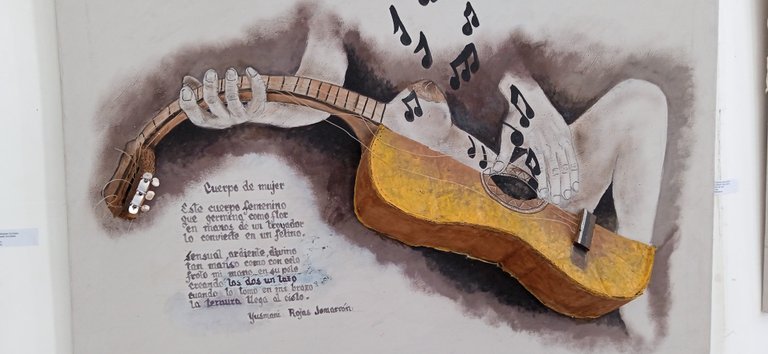 Cuerpo de mujer
Este cuerpo femenino
que germina como flor
en manos de un trovador
lo convierte en un felino.
Sensual, ardiente, divino
tan manso como con celo
froto mi mano en su pelo
creando los dos un lazo
cuando lo tomo en mi brazo
la ternura llega al cielo.
Yusmani Rojas